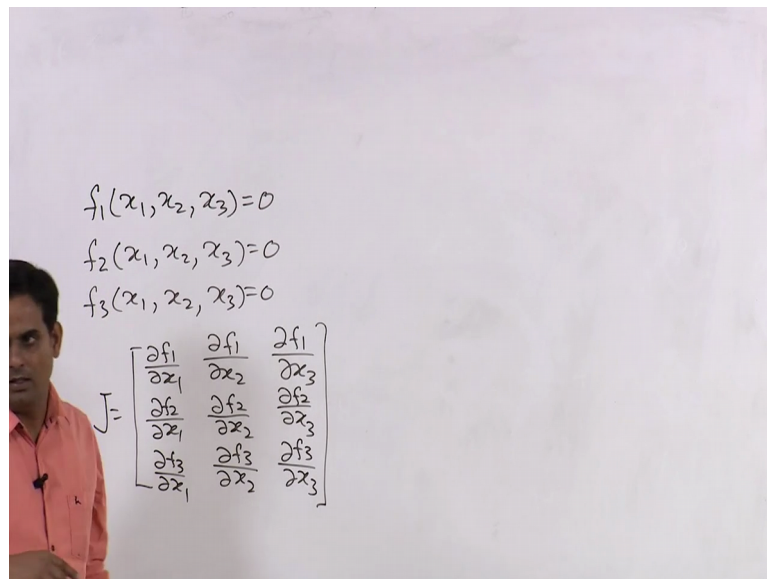 f₁(x₁, x₂, x₃)=0
f₂(x₁, x₂, x₃)=0
f₃(x₁, x₂, x₃)=0
J= [ ∂f₁/∂x₁ ∂f₁/∂x₂ ∂f₁/∂x₃
∂f₂/∂x₁ ∂f₂/∂x₂ ∂f₂/∂x₃
∂f₃/∂x₁ ∂f₃/∂x₂ ∂f₃/∂x₃ ]